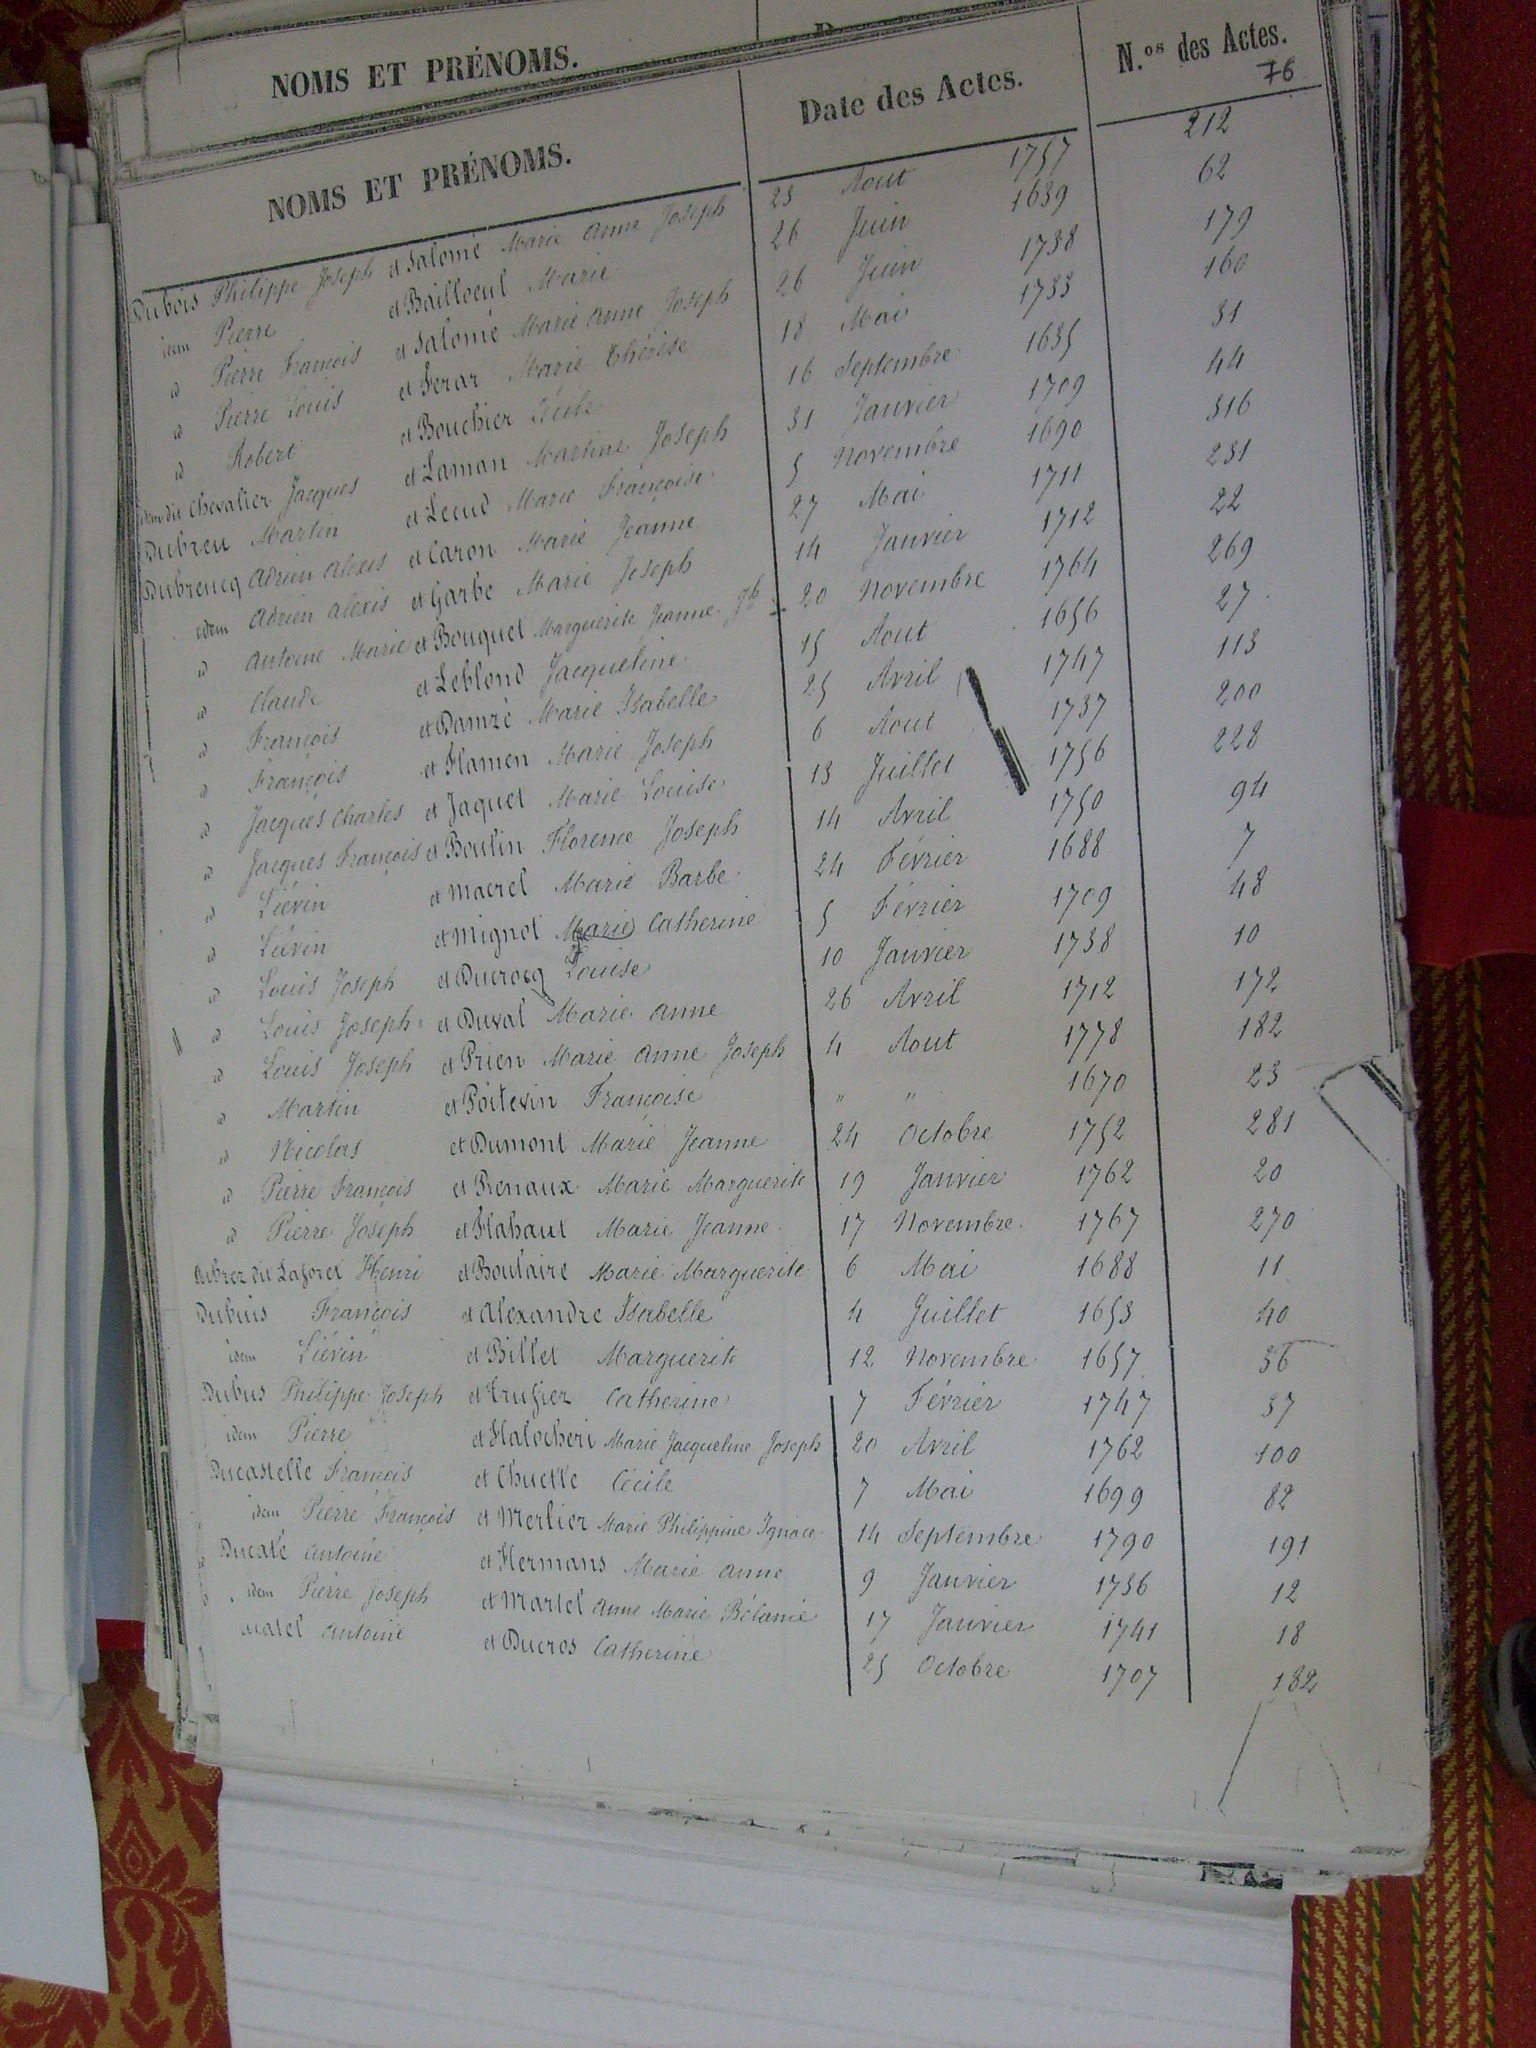 NOMS ET PRÉNOMS.
NOMS ET PRÉNOMS. Date des Actes. N.os des Actes.
76
Dubois Philippe Joseph et Salomé Marie Anne Joseph 23 Aout 1757 212
idem Pierre et Bailloeul Marie 26 Juin 1639 62
id Pierre François et Salomé Marie Anne Joseph 26 Juin 1738 179
id Pierre Louis et Ferar Marie Thérèse 18 Mai 1733 160
id Robert et Bouchier Cécile 16 Septembre 1635 31
idem dit Chevalier Jacques et Laman Martine Joseph 31 Janvier 1709 44
Dubreu Martin et Lecud Marie Françoise 5 Novembre 1690 316
Dubreucq Adrien Alexis et Caron Marie Jeanne 27 Mai 1711 231
idem Adrien Alexis et Garbe Marie Joseph 14 Janvier 1712 22
id Antoine Marie et Bouquet Marguerite Jeanne Jh 20 Novembre 1764 269
id Claude et Leblond Jacqueline 15 Aout 1656 27
id François et Damzé Marie Isabelle 25 Avril 1747 113
id François et Flamen Marie Joseph 6 Aout 1737 200
id Jacques Charles et Jaquet Marie Louise 13 Juillet 1756 228
id Jacques François et Boulin Florence Joseph 14 Avril 1750 94
id Liévin et Macrel Marie Barbe 24 Février 1688 7
id Liévin et Mignot Marie Catherine 5 Février 1709 48
id Louis Joseph et Ducrocq Louise 10 Janvier 1738 10
id Louis Joseph et Duval Marie Anne 26 Avril 1712 172
id Louis Joseph et Prien Marie Anne Joseph 4 Aout 1778 182
id Martin et Poitevin Françoise " " 1670 23
id Nicolas et Dumont Marie Jeanne 24 Octobre 1752 281
id Pierre François et Renaux Marie Marguerite 19 Janvier 1762 20
id Pierre Joseph et Flahaut Marie Jeanne 17 Novembre 1767 270
Dubrez dit Laforet Henri et Boulaire Marie Marguerite 6 Mai 1688 11
Dubuis François et Alexandre Isabelle 4 Juillet 1653 40
idem Liévin et Billet Marguerite 12 Novembre 1657 36
Dubus Philippe Joseph et Trufier Catherine 7 Février 1747 37
idem Pierre et Halocheri Marie Jacqueline Joseph 20 Avril 1762 100
Ducastelle François et Chuette Cécile 7 Mai 1699 82
idem Pierre François et Merlier Marie Philippine Ignace 14 Septembre 1790 191
Ducaté Antoine et Hermans Marie Anne 9 Janvier 1736 12
idem Pierre Joseph et Martel Anne Marie Bélanie 17 Janvier 1741 18
Ducatel Antoine et Ducros Catherine 25 Octobre 1707 182